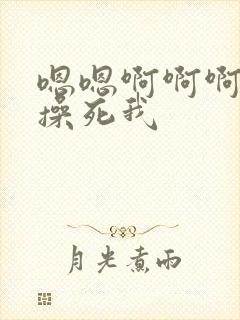 嗯嗯啊啊啊
操死我
月光煮雨